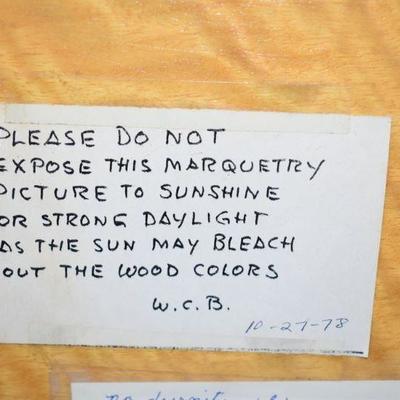 PLEASE DO NOT
EXPOSE THIS MARQUETRY
PICTURE TO SUNSHINE
OR STRONG DAYLIGHT
AS THE SUN MAY BLEACH
OUT THE WOOD COLORS
W.C.B.
10-27-78